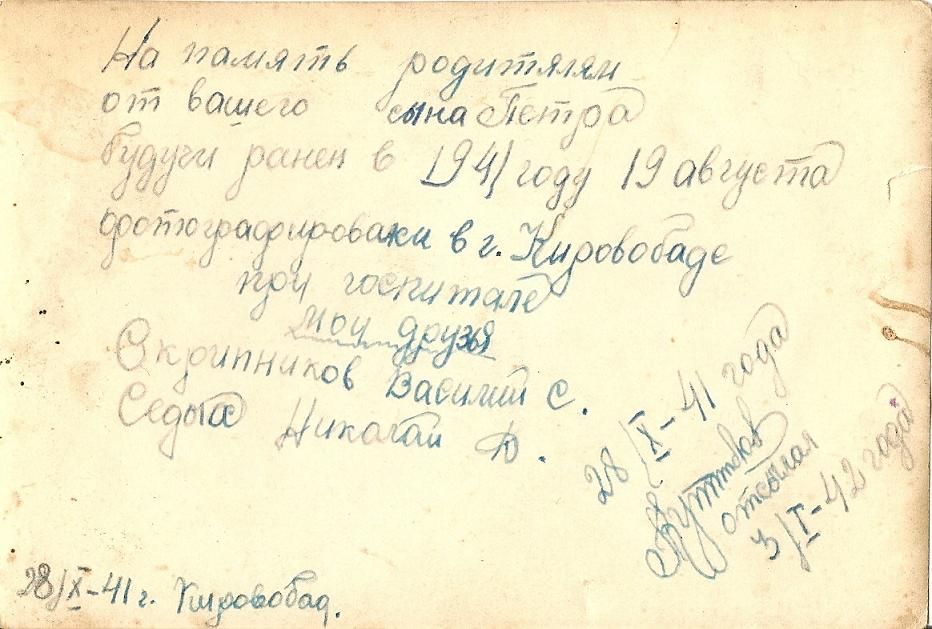 На память родителям
от вашего сына Петра
будучи ранен в 1941 году 19 августа
фотографироваки в г. Кировобаде
при госпитале
мои друзья
Скрипников Василий С.
Седых Николай Ф.
28/X-41 года
отсылал
3/I-42 года
28/X-41 г. Кировобад.